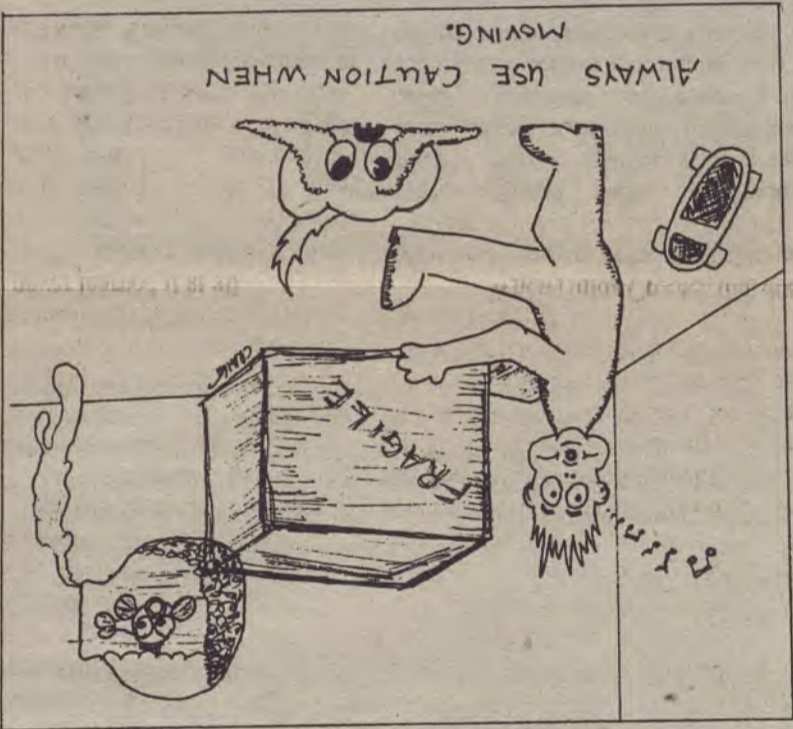 FRAGILE
CRAIG
ALWAYS USE CAUTION WHEN
MOVING.